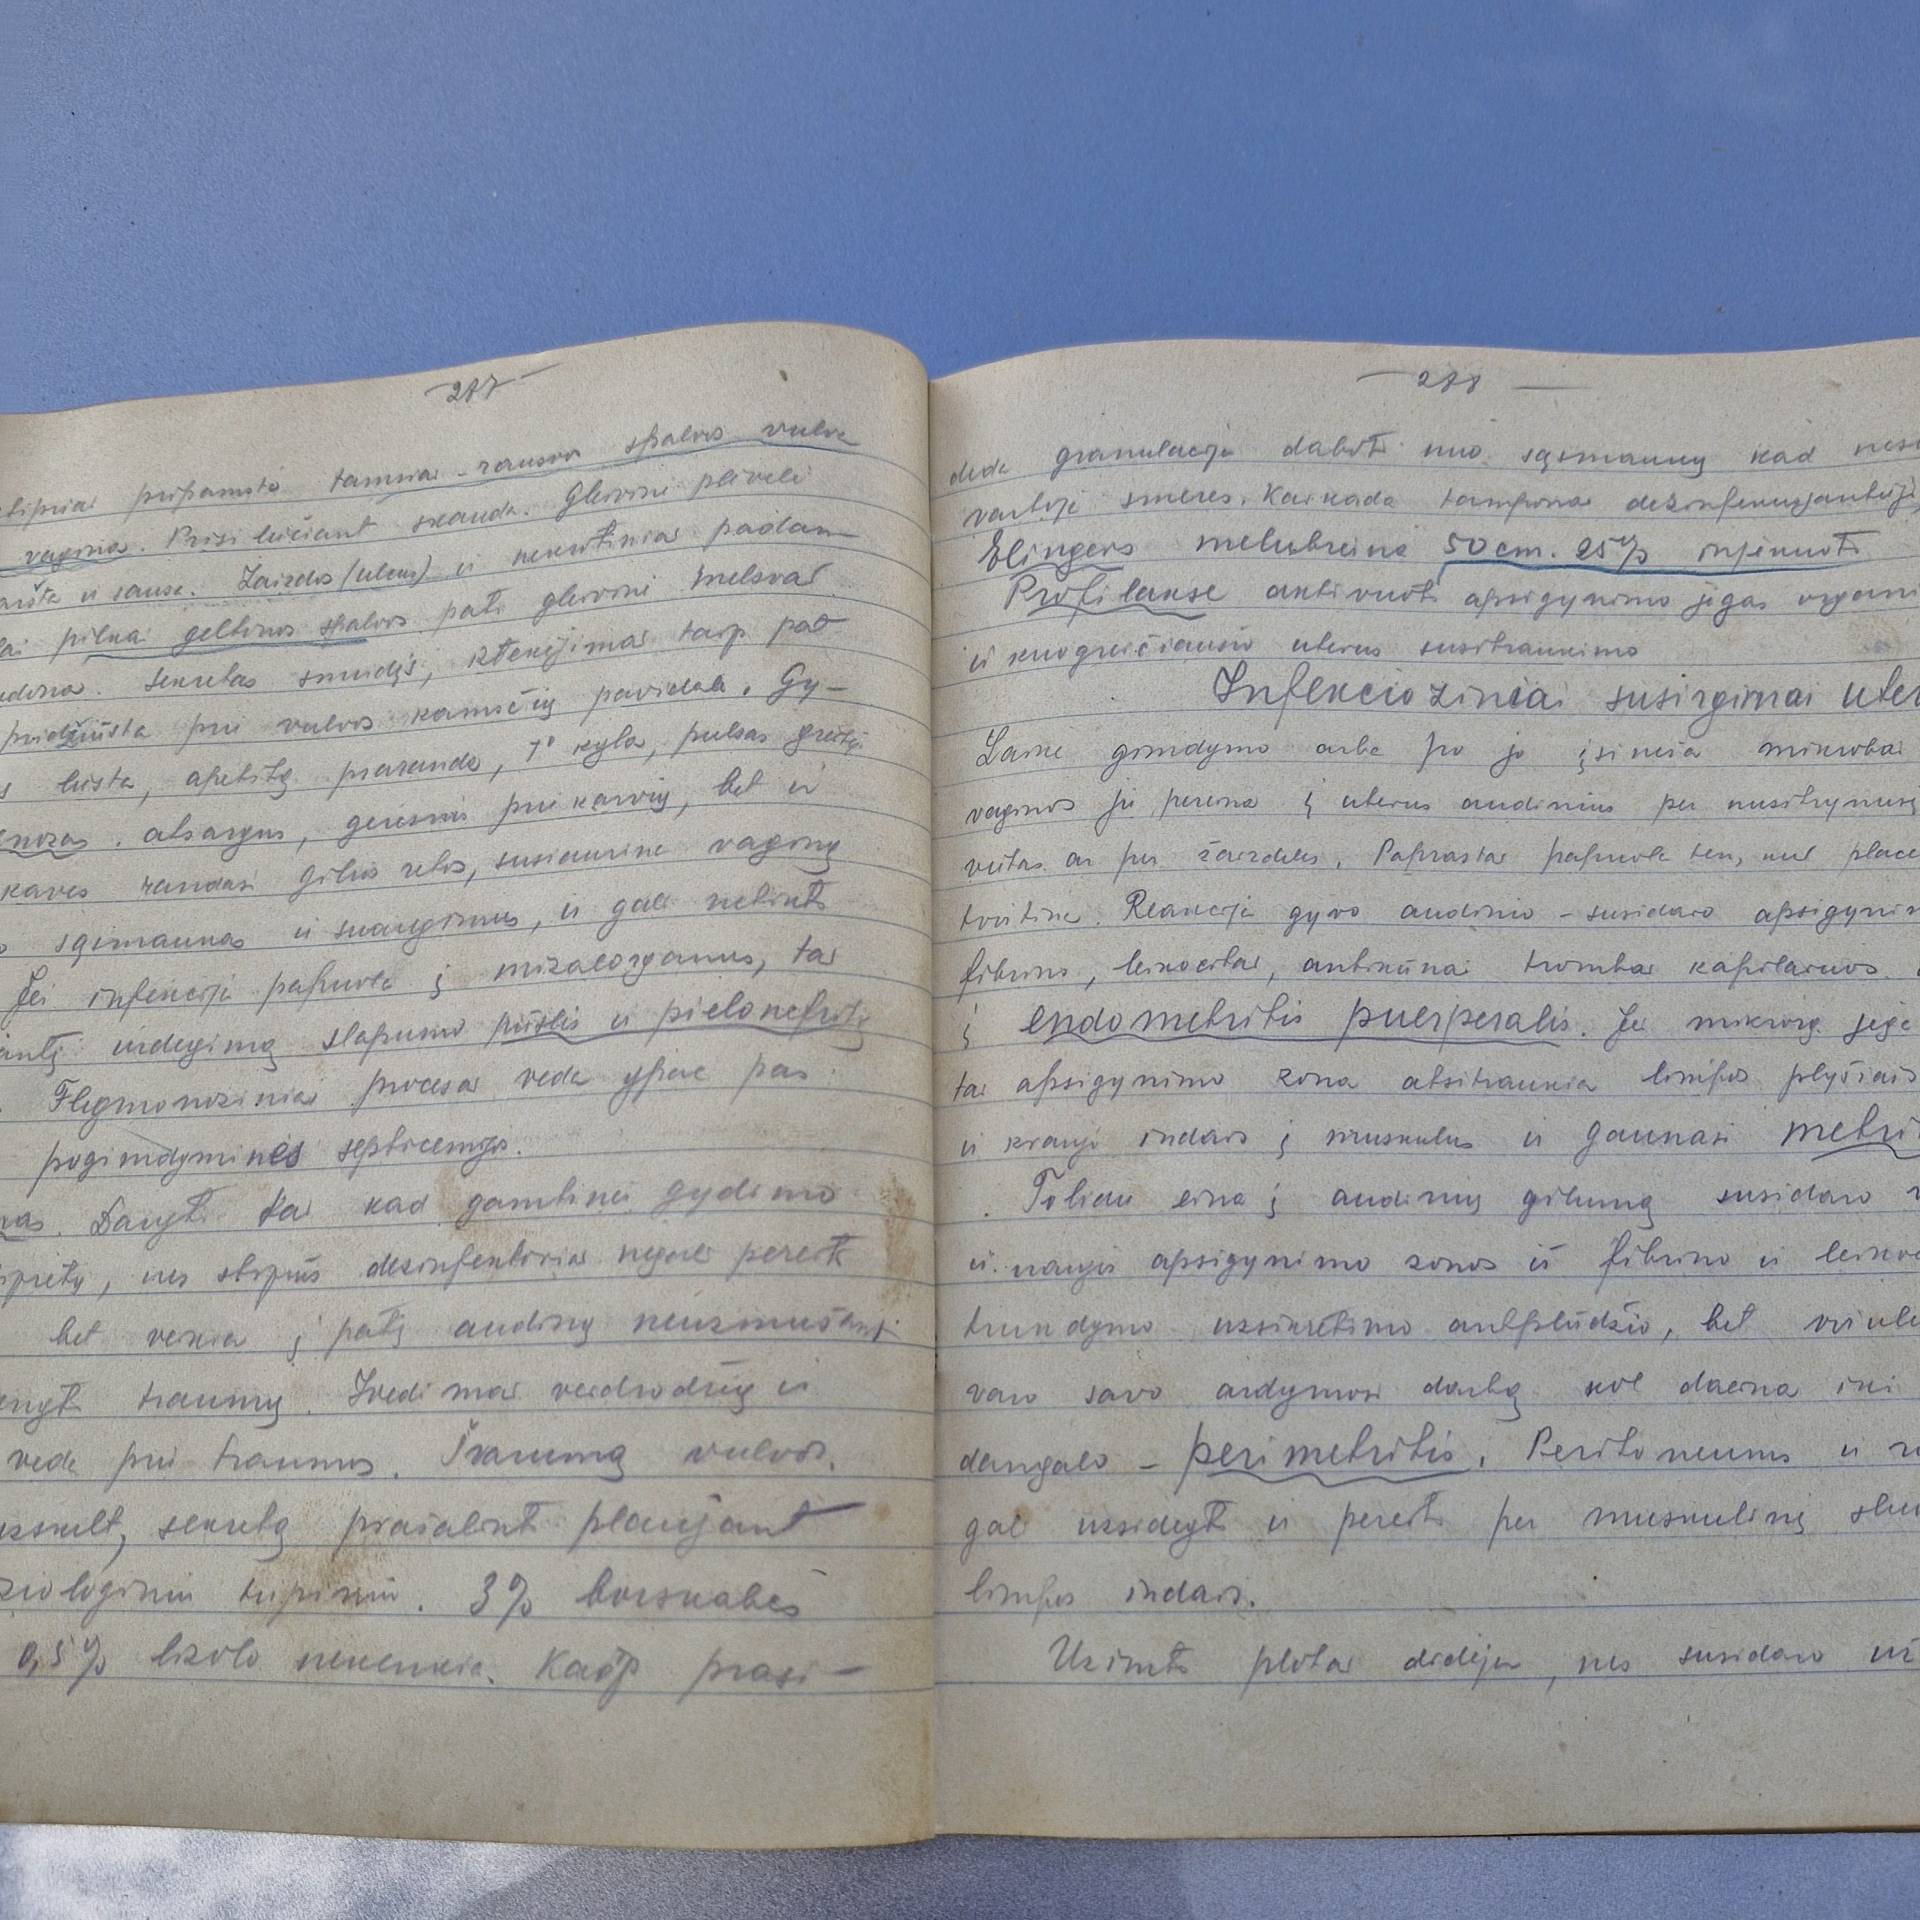 287
pripamsta tamsiai-rausvos spalvos vulva
vagina. Prisilieciant skauda. Gleivinė plėvelė
ir sausa. Žaizdos (ulcus) ir nekrotiniai padam
pilnai geltonos spalvos pati gleivinė melsvai
sekretas smirdįs, ištekėjimai tarp pat
pridžiūsta prie vulvos kamščių pavidale. Gy-
s liesta, apetitą praranda, T° kyla, pulsas greitėj
nozas. atsargus, geresnis prie karvių, bet ir
karvės randasi gilus rėtis, susiaurina vaginą
sąsmaukas ir suaugimus, ir gali netikti
Jei infekcija papuola į mizalorganus, tai
uždegimą šlapumo pūslės ir pielonefritį
Flegmonoziniai procesai veda ypač pas
pogimdyminės septicemijos.
nas. Daryti tai kad gamtinei gydimo
nes stiprūs desinfektoriai negali pereiti
bet veikia į patį audinų neužmušant
traumų. Įvedimai veidrodžių ir
veda prie traumos. Išraumą vulvos.
sekretą prašalint plaujant
ziologiniu tirpiniu. 3% borskabės
0,5% lizolo nekenkia. Kaip prasi-
288
deda granulacija daboti nuo sąsmaukų kad nesu
vartoja smeres. Kaikada tamponai dezinfekuojantieji
Elingers melubrina 50 cm. 25% injekuoti
Profilakse aktivuoti apsigynimo jėgas organi
ir kuogreičiausio uterus susitraukimo
Infekcioziniai susirgimai uter
Laike gimdymo arba po jo įsineša mikrobai
vaginos jie pereina į uterus audinius per nusitrynusę
vietas ar per žaizdeles. Paprastai papuola ten, kur place
tvirtina. Reakcija gyvo audinio - susidaro apsigynim
fibrino, leikocitai, antikūnai trombai kapilaruos.
į endometritis puerperalis. Jei mikroorg. jėga
tai apsigynimo zona atsitraukia limfos plyšiais
ir kraujo indais į muskulus ir gaunasi metri
Toliau eina į audinių gilumą susidaro n
ir naujos apsigynimo zonos iš fibrino ir leikoc
trundymo užsikrėtimo antplūdžio, bet virule
varo savo ardymosi darbą kol daeina iki
dangalo - perimetritis. Peritoneums ir n
gali užsidegti ir pereiti per muskulinį sluo
limfos indais.
Užimtas plotas didėja, nes susidaro už